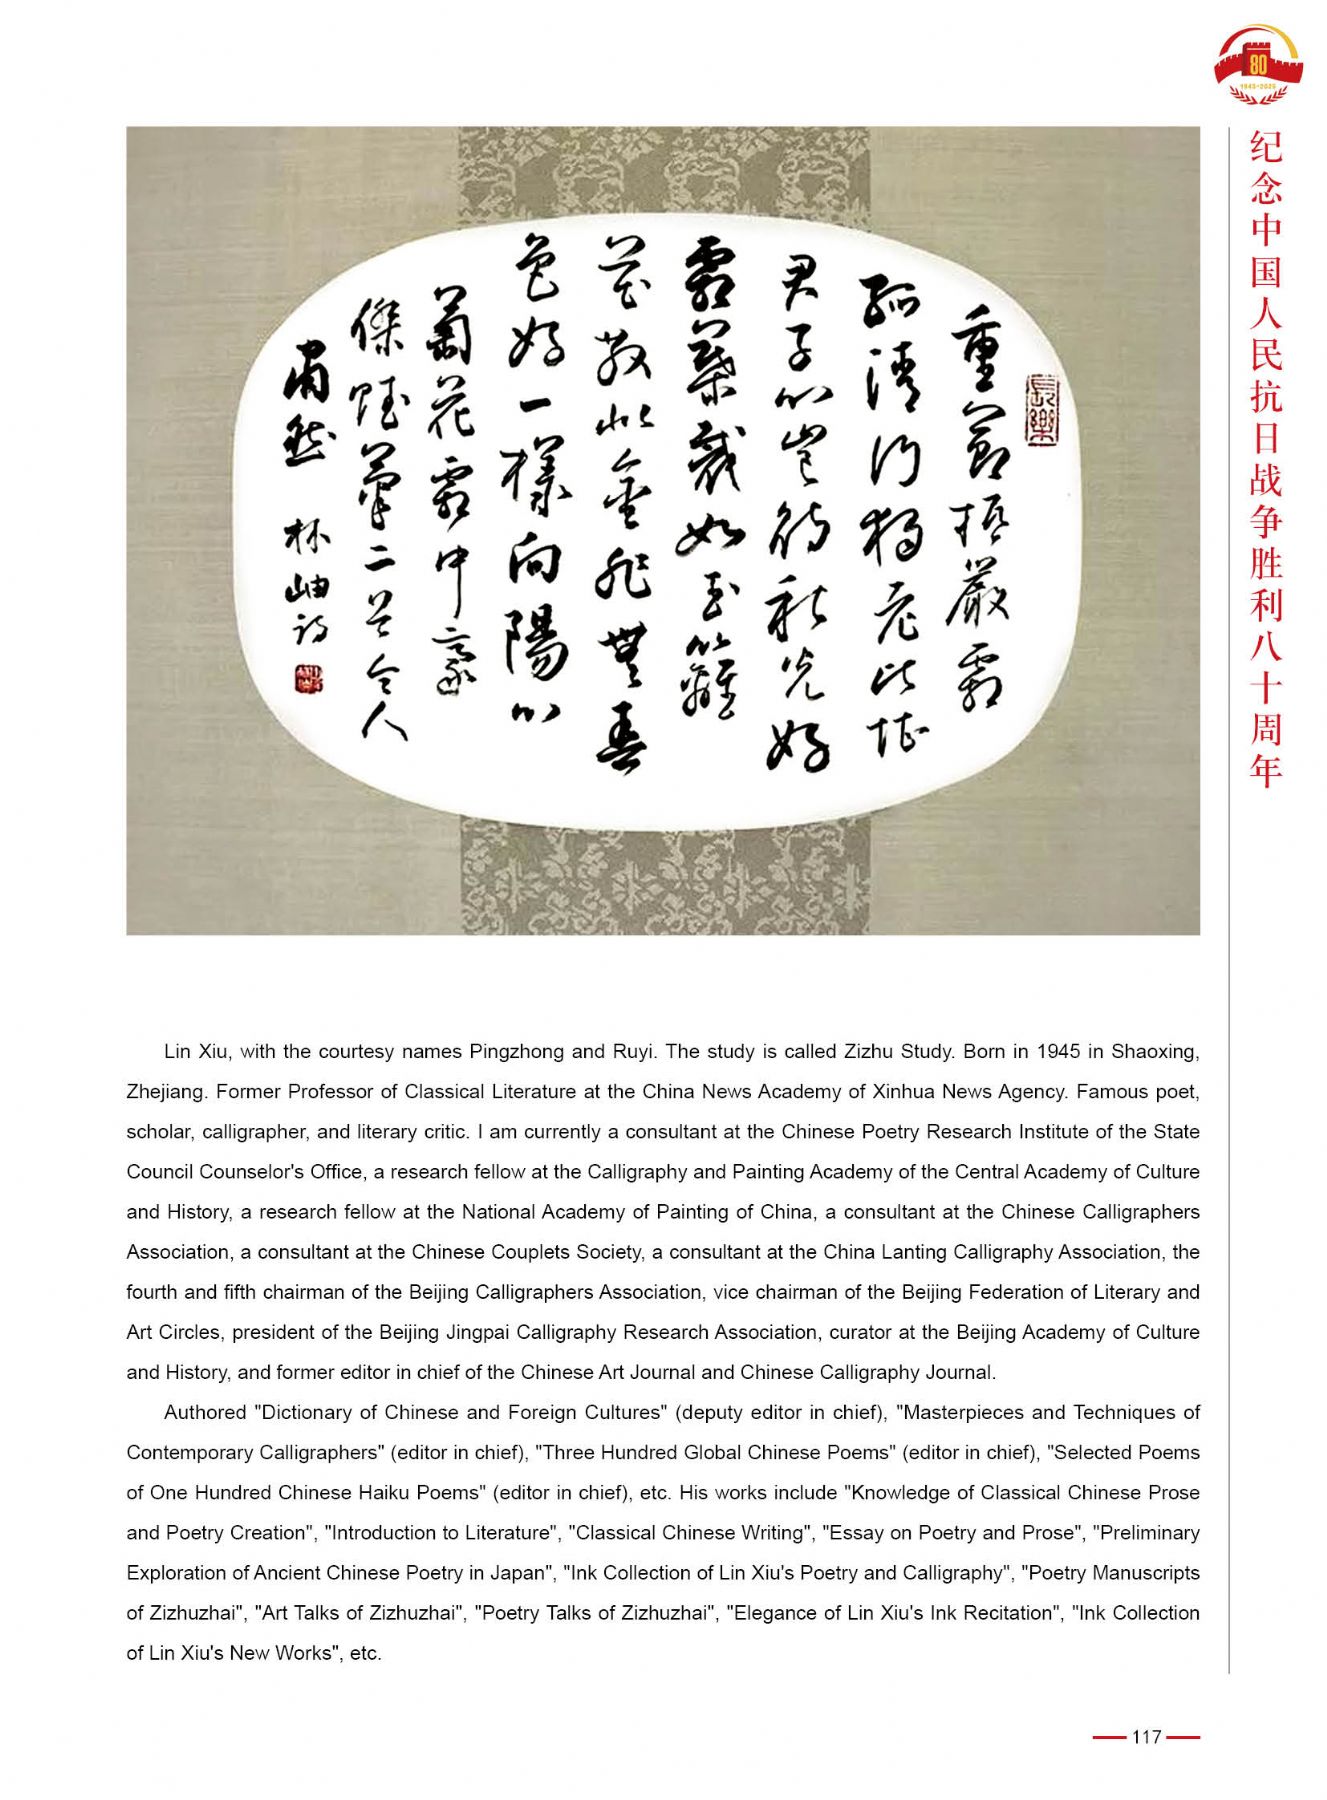 80
1945-2025
纪念中国人民抗日战争胜利八十周年
長樂
重節頻嚴霜
孤清行獨危比
君子以豈待秋光好
霜葉裁如玉籬
花放似金非無春
色好一樣向陽心
菊花霜中豪
傑賦第二首令人
肅然 林岫詩
Lin Xiu, with the courtesy names Pingzhong and Ruyi. The study is called Zizhu Study. Born in 1945 in Shaoxing,
Zhejiang. Former Professor of Classical Literature at the China News Academy of Xinhua News Agency. Famous poet,
scholar, calligrapher, and literary critic. I am currently a consultant at the Chinese Poetry Research Institute of the State
Council Counselor's Office, a research fellow at the Calligraphy and Painting Academy of the Central Academy of Culture
and History, a research fellow at the National Academy of Painting of China, a consultant at the Chinese Calligraphers
Association, a consultant at the Chinese Couplets Society, a consultant at the China Lanting Calligraphy Association, the
fourth and fifth chairman of the Beijing Calligraphers Association, vice chairman of the Beijing Federation of Literary and
Art Circles, president of the Beijing Jingpai Calligraphy Research Association, curator at the Beijing Academy of Culture
and History, and former editor in chief of the Chinese Art Journal and Chinese Calligraphy Journal.
Authored "Dictionary of Chinese and Foreign Cultures" (deputy editor in chief), "Masterpieces and Techniques of
Contemporary Calligraphers" (editor in chief), "Three Hundred Global Chinese Poems" (editor in chief), "Selected Poems
of One Hundred Chinese Haiku Poems" (editor in chief), etc. His works include "Knowledge of Classical Chinese Prose
and Poetry Creation", "Introduction to Literature", "Classical Chinese Writing", "Essay on Poetry and Prose", "Preliminary
Exploration of Ancient Chinese Poetry in Japan", "Ink Collection of Lin Xiu's Poetry and Calligraphy", "Poetry Manuscripts
of Zizhuzhai", "Art Talks of Zizhuzhai", "Poetry Talks of Zizhuzhai", "Elegance of Lin Xiu's Ink Recitation", "Ink Collection
of Lin Xiu's New Works", etc.
117